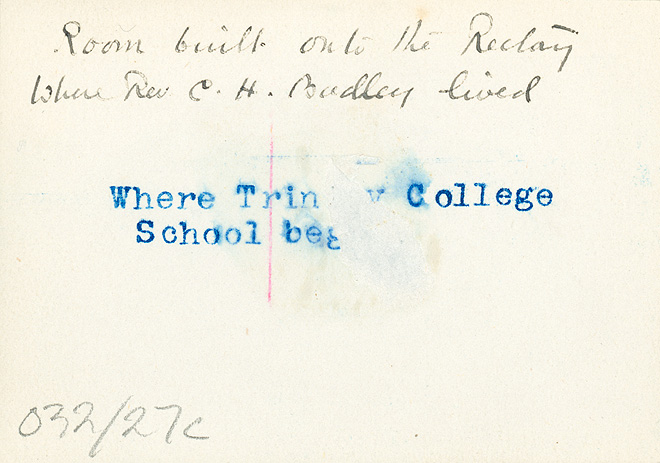 Room built onto the Rectory
Where Rev C. H. Badley lived
Where Trin y College
School beg
032/27c